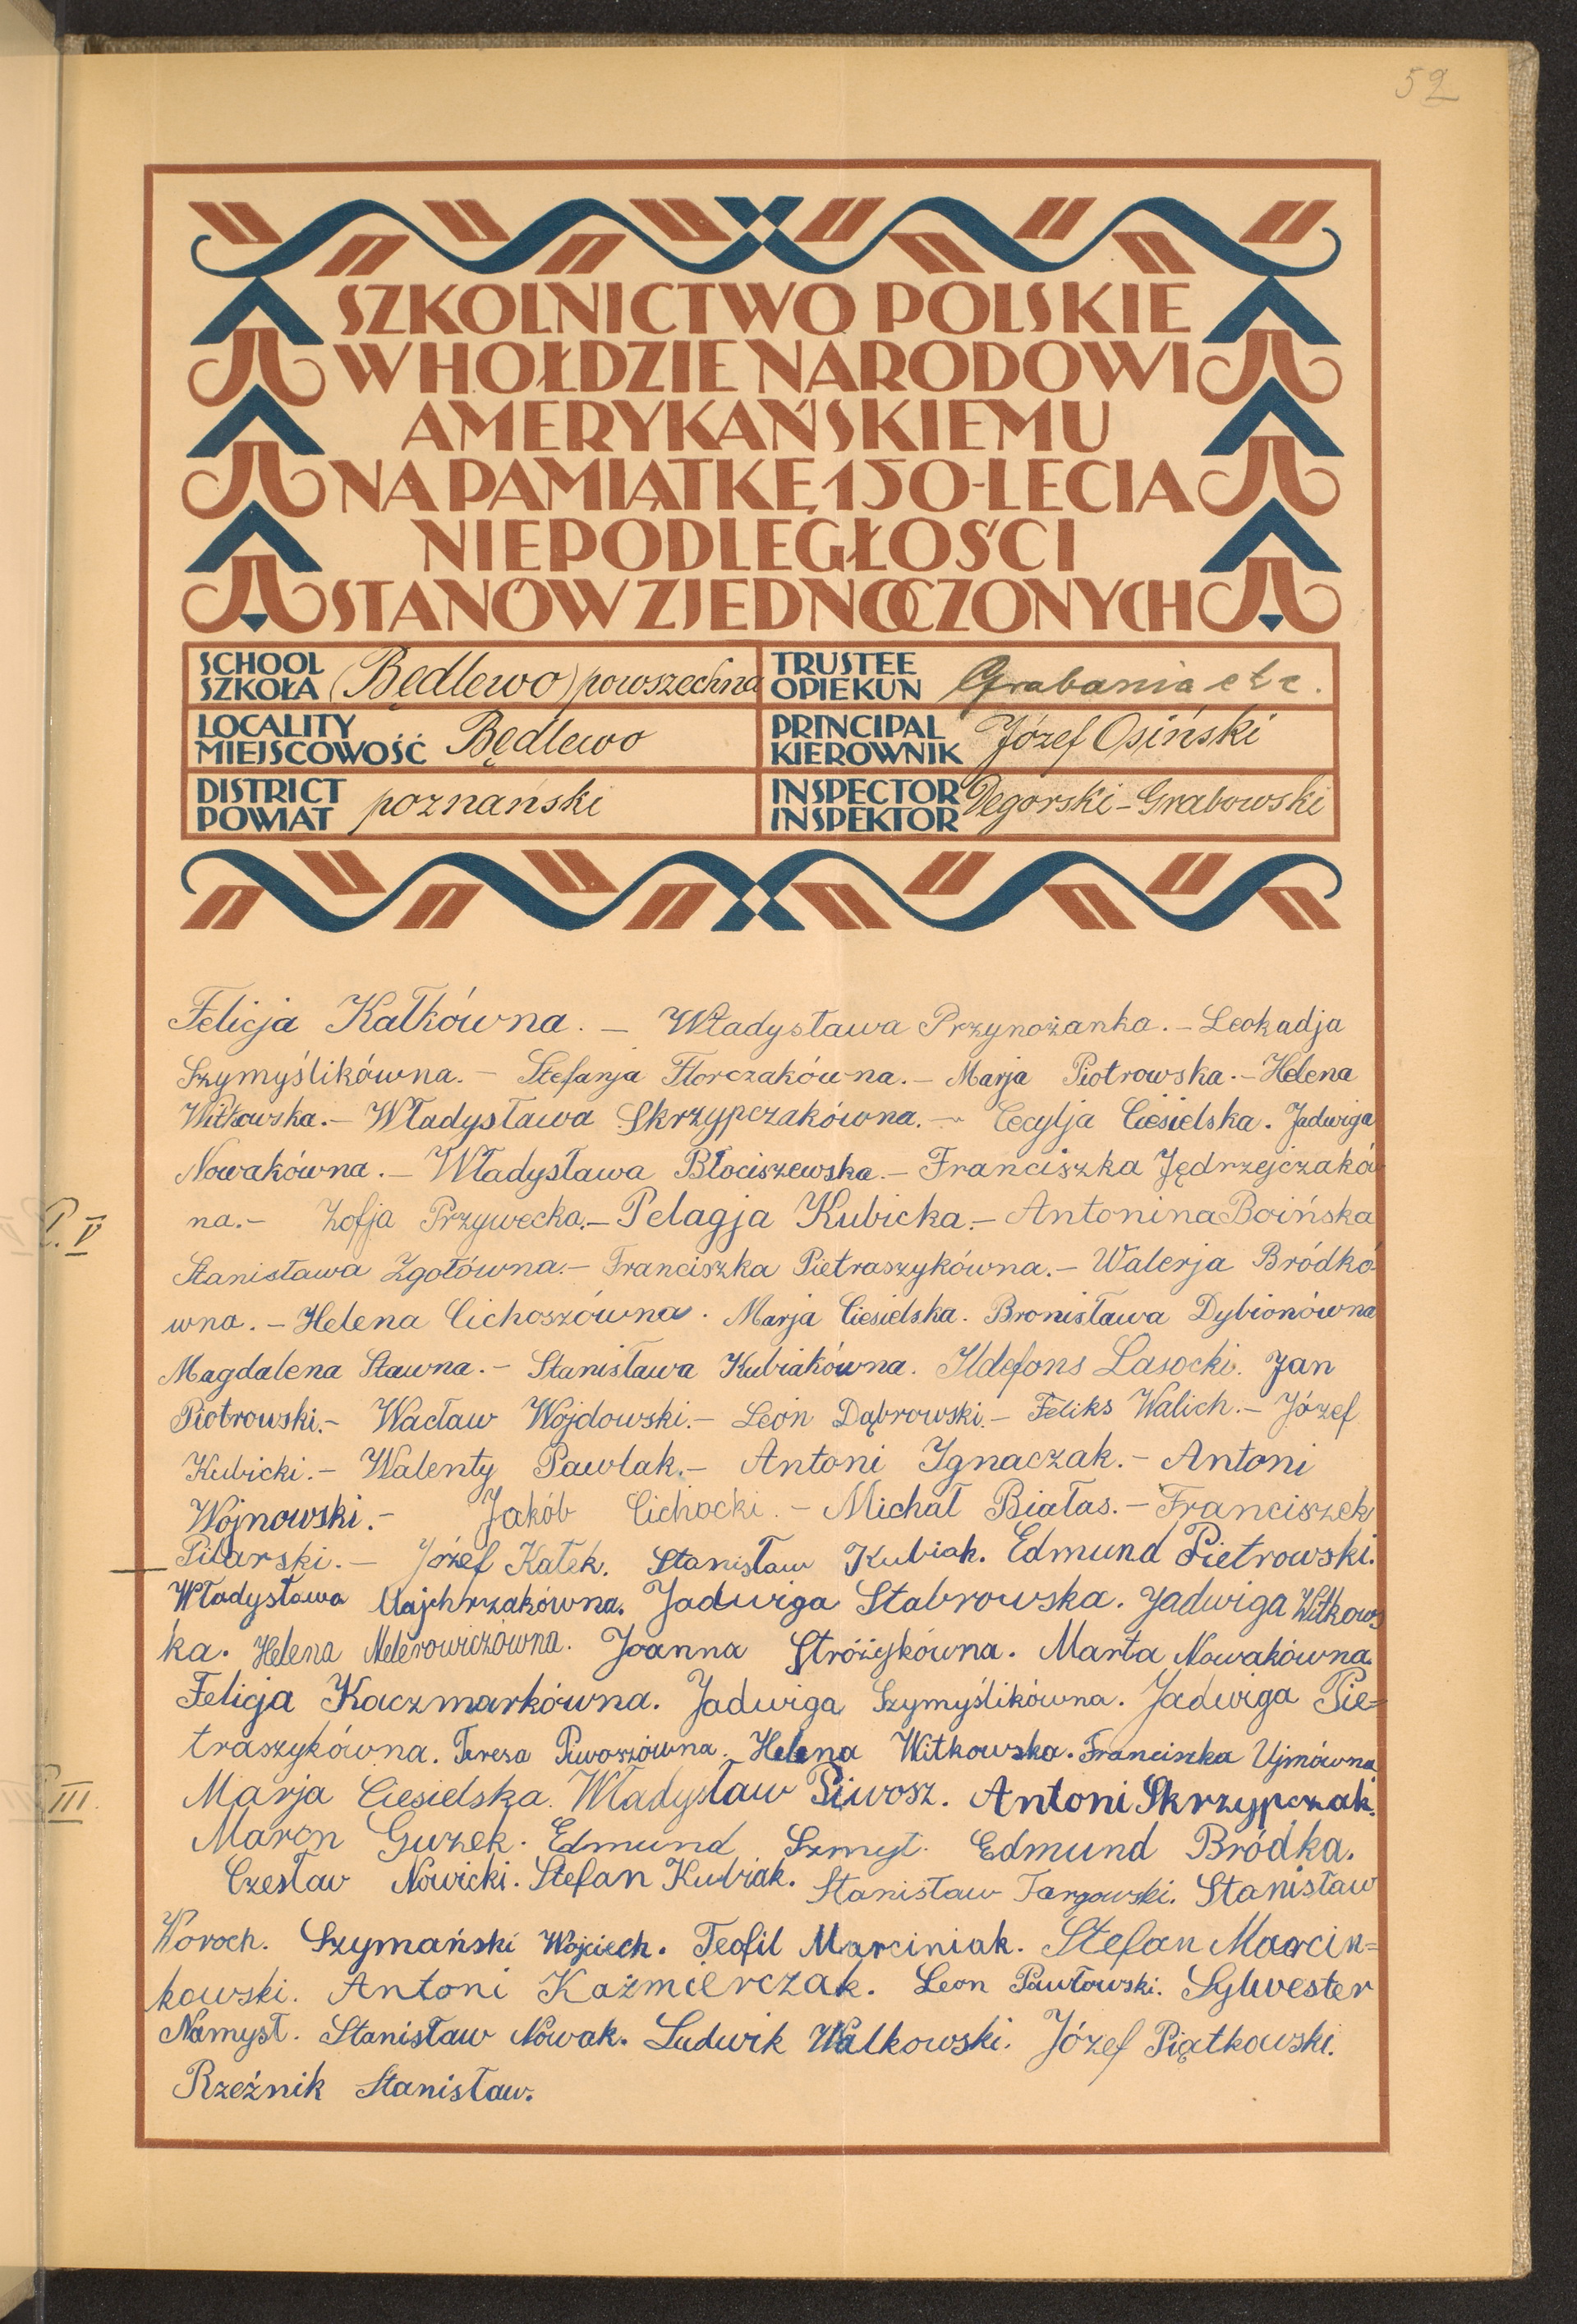 52
SZKOLNICTWO POLSKIE
W HOŁDZIE NARODOWI
AMERYKAŃSKIEMU
NA PAMIĄTKĘ 150-LECIA
NIEPODLEGŁOŚCI
STANÓW ZJEDNOCZONYCH
SCHOOL SZKOŁA (Będlewo) powszechna
TRUSTEE OPIEKUN Grabania etc.
LOCALITY MIEJSCOWOŚĆ Będlewo
PRINCIPAL KIEROWNIK Józef Osiński
DISTRICT POWIAT poznański
INSPECTOR INSPEKTOR Degorski-Grabowski
Felicja Kałkówna. – Władysława Przynożanka. – Leokadja
Szymyślikówna. – Stefanja Florczakówna. – Marja Piotrowska. – Helena
Witkowska. – Władysława Skrzypczakówna. – Cecylja Ciesielska. Jadwiga
Nowakówna. – Władysława Błociszewska. – Franciszka Jędrzejczaków
na. – Zofja Przywecka. – Pelagja Kubicka. – Antonina Boińska
P. V
Stanisława Zgołówna. – Franciszka Pietraszykówna. – Walerja Bródkó
wna. – Helena Cichoszówna. Marja Ciesielska. Bronisława Dybionówna
Magdalena Stawna. – Stanisława Kubiakówna. Ildefons Lasocki. Jan
Piotrowski. – Wacław Wojdowski. – Leon Dąbrowski. – Feliks Walich. – Józef
Kubicki. – Walenty Pawlak. – Antoni Ignaczak. – Antoni
Wojnowski. – Jakób Cichocki. – Michał Białas. – Franciszek
Pilarski. – Józef Kałek. Stanisław Kubiak. Edmund Pietrowski.
Władysława Majchrzakówna. Jadwiga Stabrowska. Jadwiga Witkows
ka. Helena Melerowiczowna. Joanna Stróżykówna. Marta Nowakówna.
Felicja Kaczmarkówna. Jadwiga Szymyślikówna. Jadwiga Pie=
traszykówna. Teresa Piwoszówna. Helena Witkowska. Franciszka Ujmówna
III.
Marja Ciesielska. Władysław Piwosz. Antoni Skrzypczak.
Marcn Guzek. Edmund Szmyt. Edmund Bródka.
Czesław Nowicki. Stefan Kubiak. Stanisław Targowski. Stanisław
Woroch. Szymański Wojciech. Teofil Marciniak. Stefan Marcin=
kowski. Antoni Kaźmierczak. Leon Pawłowski. Sylwester
Namysł. Stanisław Nowak. Ludwik Walkowski. Józef Piątkowski.
Rzeźnik Stanisław.